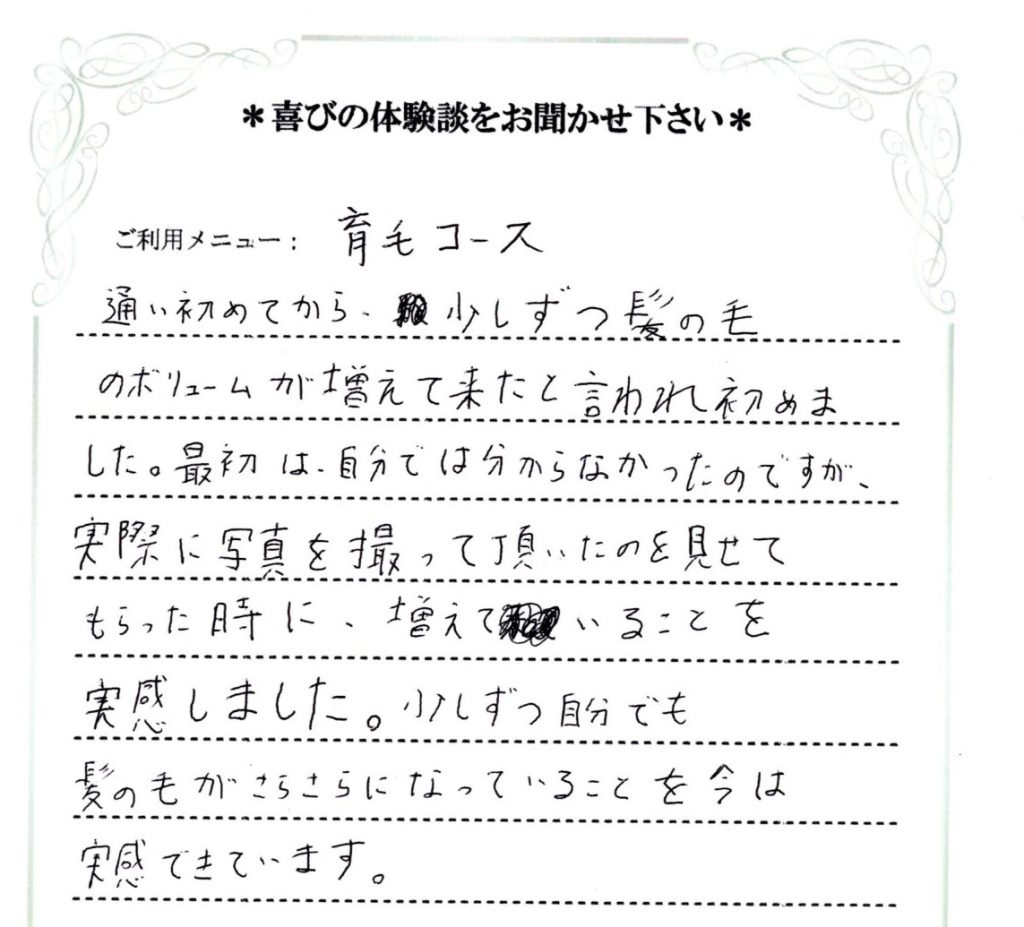 ＊喜びの体験談をお聞かせ下さい＊
ご利用メニュー： 育毛コース
通い初めてから、少しずつ髪の毛
のボリュームが増えて来たと言われ初めま
した。最初は、自分では分からなかったのですが、
実際に写真を撮って頂いたのを見せて
もらった時に、増えていることを
実感しました。少しずつ自分でも
髪の毛がさらさらになっていることを今は
実感できています。